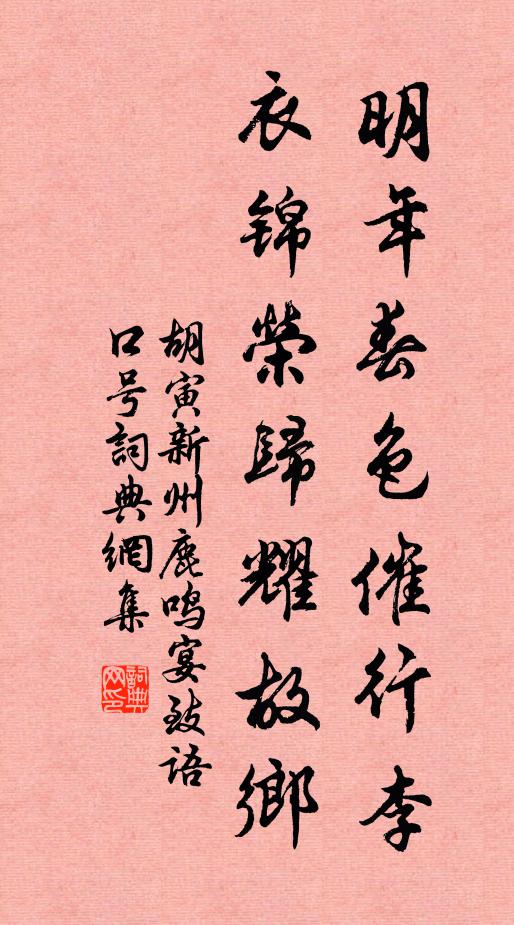 明年春色催行李
衣锦榮歸耀故鄉
胡寅新州鹿鸣宴致语
口号詞典網集
詞典网印